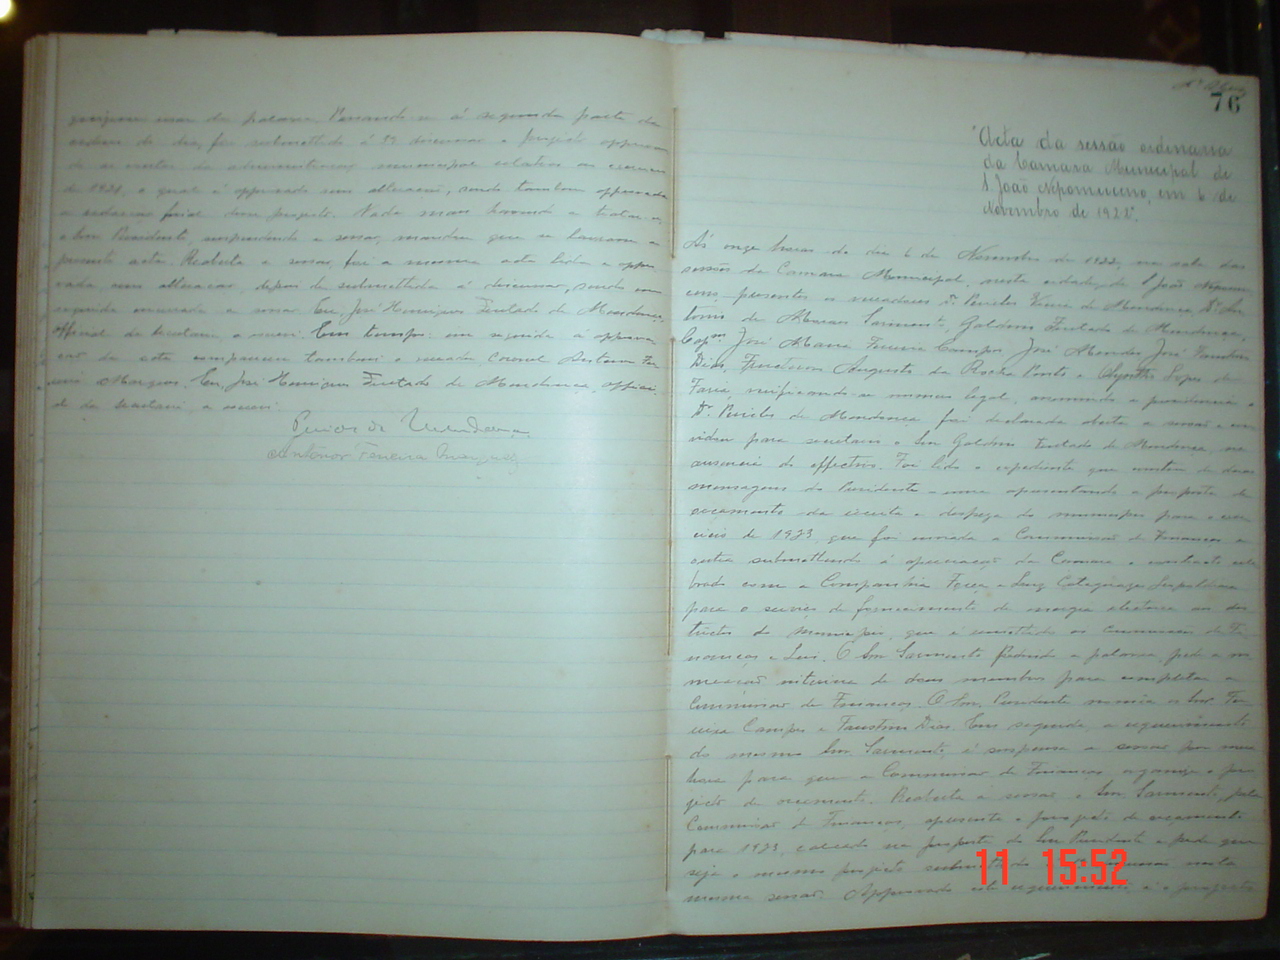 quizesse usar da palavra. Passando-se á segunda parte da
ordem do dia, foi submettido á 1ª discussão o projecto approvan
do as contas da administração municipal relativas ao exercicio
de 1921, o qual é approvado sem alteração, sendo tambem approvada
a redacção final deste projecto. Nada mais havendo a tratar-se
o Snr Presidente, suspendendo a sessão, mandou que se lavrasse a
presente acta. Reaberta a sessão, foi a mesma acta lida e appro
vada, sem alteração, depois de submettida á discussão, sendo em
seguida encerrada a sessão. Eu, José Henriques Furtado de Mendonça,
official da secretaria, a escrevi. Em tempo: em seguida á approva
ção da acta compareceu tambem o vereador Coronel Antenor Fer
reira Marques. Eu, José Henriques Furtado de Mendonça, offici
al da secretaria, a escrevi.
Pericles de Mendonça
Antenor Ferreira Marques
76
"Acta da sessão ordinaria
da Camara Municipal de
S João Nepomuceno, em 6 de
Novembro de 1922".
Ás onze horas do dia 6 de Novembro de 1922, na sala das
sessões da Camara Municipal, nesta cidade de S João Nepomu
ceno, presentes os vereadores Dr. Pericles Vieira de Mendonça, Dr.
de Moraes Sarmento, Galdino Furtado de Mendonça,
Capm José Maria Ferreira Campos, José Mendes, José Faustino
Dias, Augusto da Rocha Pinto e Olyntho Lopes de
Faria, verificando-se numero legal, assumindo a presidencia o
Dr. Pericles de Mendonça, foi declarada aberta a sessão e con
vidou para secretario o Snr Galdino Furtado de Mendonça, na
ausencia do effectivo. Foi lido o expediente que constou de duas
mensagens do Presidente - uma apresentando a proposta de
orçamento da receita e despeza do municipio para o exer
cicio de 1923, que foi enviada a Commissão de Finanças e
outra submettendo á apreciação da Camara o contracto cele
brado com a Companhia Força e Luz Cataguazes Leopoldina
para o serviço de fornecimento de energia electrica aos dis
trictos do municipio, que é remettido ás Commissões de Fi
nanças e Leis. O Snr Sarmento pedindo a palavra, pede a no
meação interina de dous membros para completar a
Commissão de Finanças. O Snr. Presidente nomeia os Snrs Fer
reira Campos e Faustino Dias. Em seguida, a requerimento
do mesmo Snr. Sarmento, é suspensa a sessão por uma
hora para que a Commissão de Finanças organize o pro
jecto de orçamento. Reaberta a sessão, o Snr. Sarmento, pela
Commissão de Finanças, apresenta o projecto de orçamento
para 1923, calcado na proposta do Snr Presidente e pede que
seja o mesmo projecto submettido discussão nesta
mesma sessão. Approvado este requerimento, é o projecto
11 15:52